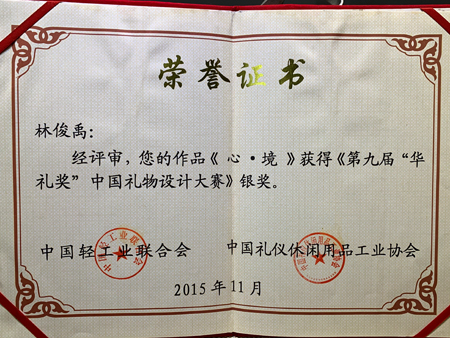 荣誉证书
林俊禹：
经评审，您的作品《 心·境 》获得《第九届“华
礼奖”中国礼物设计大赛》银奖。
中国轻工业联合会 中国礼仪休闲用品工业协会
2015年11月